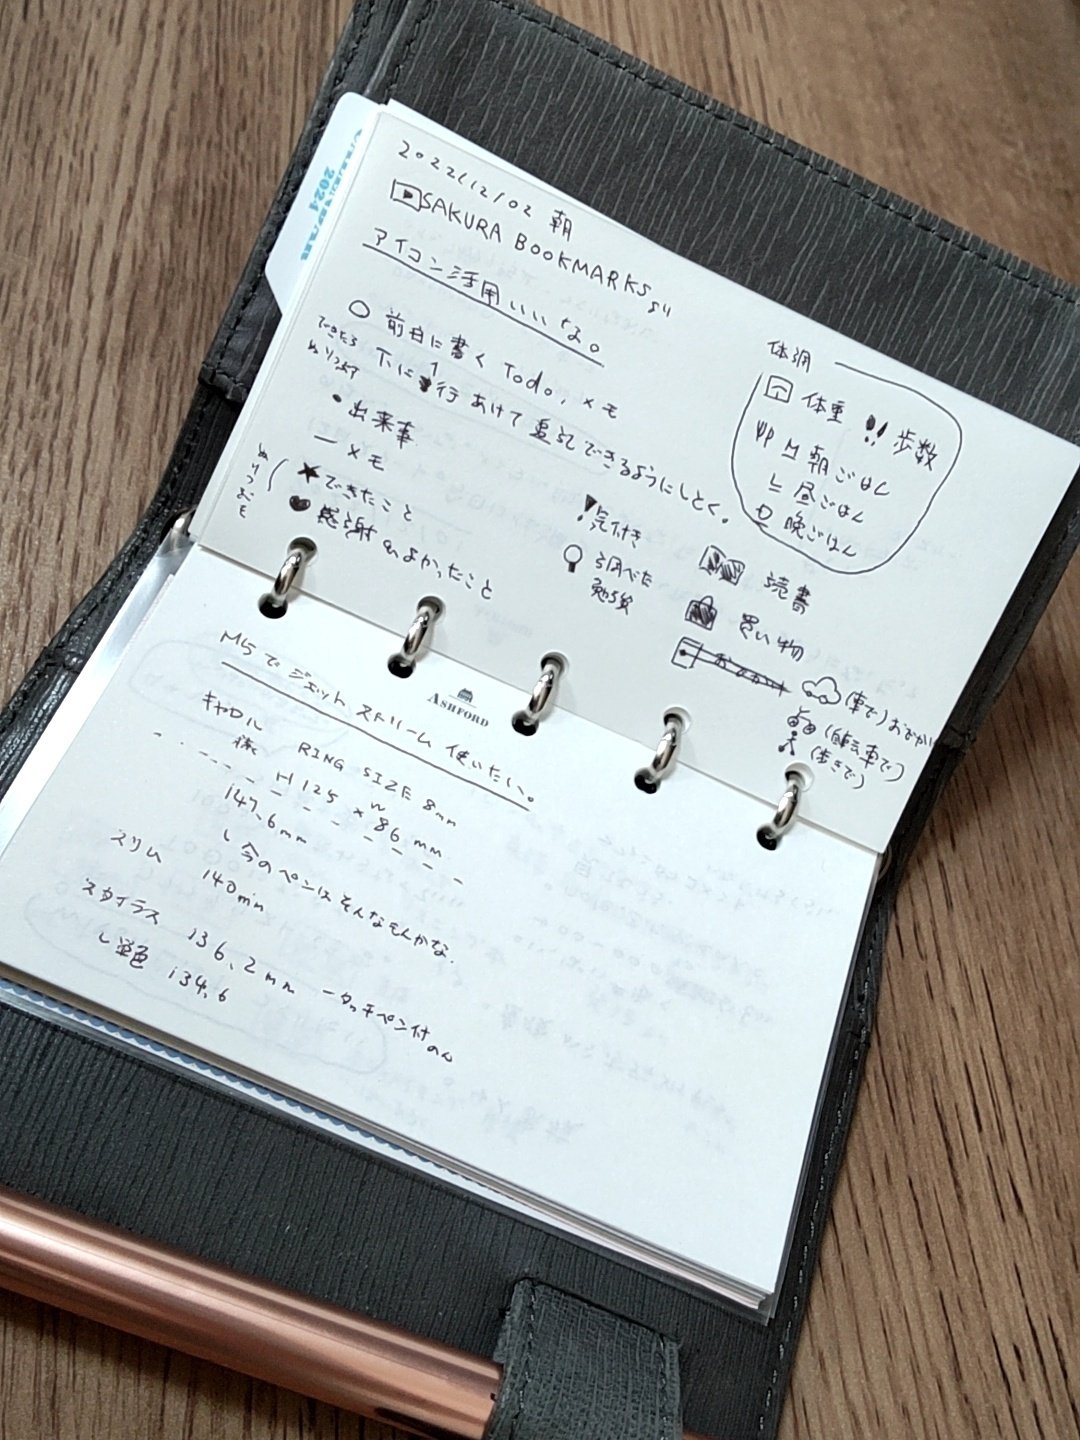 2024
2022/12/02 朝
SAKURA BOOKMARKS より
アイコン活用いいな。
○ 前日に書く Todo, メモ
できたら
ぬりつぶす
下に1行あけて追記できるようにしとく。
・出来事
ー メモ
★できたこと
♥感謝 よかったこと
!気付き
調べた
勉強
体調
体重 歩数
M 朝ごはん
L 昼ごはん
D 晩ごはん
読書
買い物
おでかけ
(車で)おでかけ
(自転車で)
(歩きで)
ASHFORD
M5でジェットストリーム使いたい。
キャロル RING SIZE 8mm
H125 × W86 mm
147.6mm
し 今のペンはそんなもんかな.
スリム 140mm
スタイラス 136.2mm ータッチペン付のん
し単色 134.6